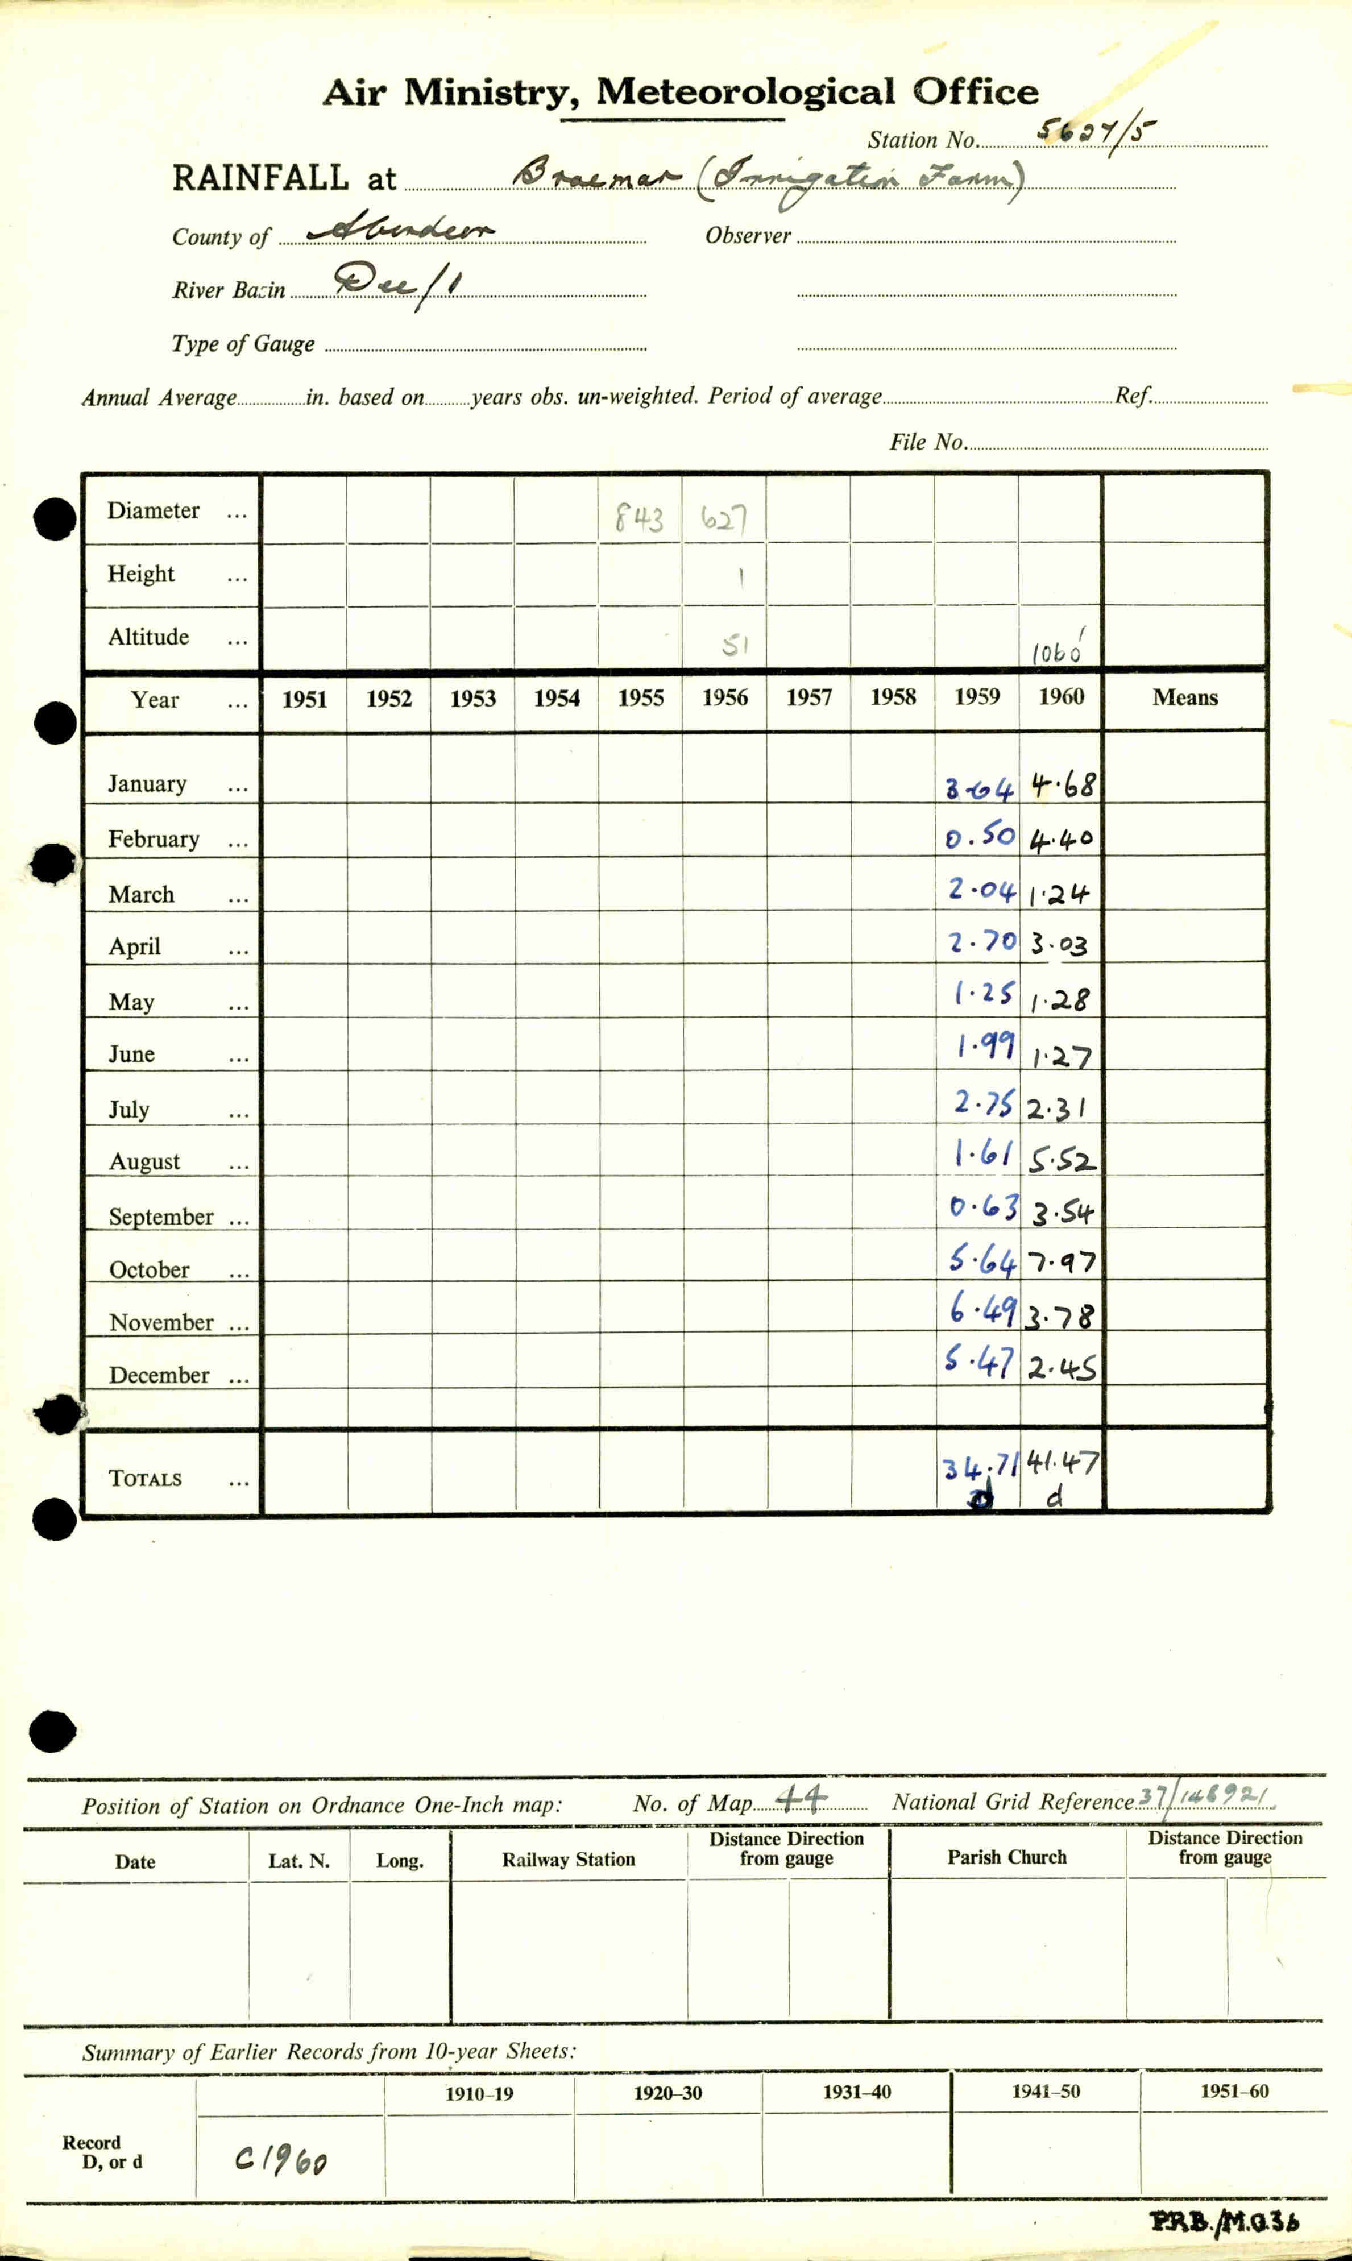 Air Ministry, Meteorological Office
Station No. 5627/5
RAINFALL at Braemar (Irrigation Farm)
County of Aberdeen Observer
River Basin Dee/1
Type of Gauge
Annual Average in. based on years obs. un-weighted. Period of average Ref.
File No.
Diameter ... 843 627
Height ... 1
Altitude ... 51 1060'
Year ... 1951 1952 1953 1954 1955 1956 1957 1958 1959 1960 Means
January ... 3.64 4.68
February ... 0.50 4.40
March ... 2.04 1.24
April ... 2.70 3.03
May ... 1.25 1.28
June ... 1.99 1.27
July ... 2.75 2.31
August ... 1.61 5.52
September ... 0.63 3.54
October ... 5.64 7.97
November ... 6.49 3.78
December ... 5.47 2.45
TOTALS ... 34.71 41.47
d d
Position of Station on Ordnance One-Inch map: No. of Map 44 National Grid Reference 37/148921
Date Lat. N. Long. Railway Station Distance Direction from gauge Parish Church Distance Direction from gauge
Summary of Earlier Records from 10-year Sheets:
1910-19 1920-30 1931-40 1941-50 1951-60
Record
D, or d C1960
P.R.B./M.O.36